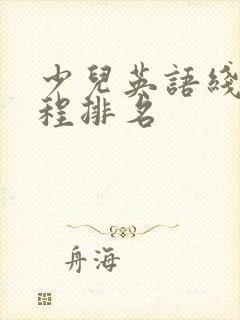 少兒英語綫
程排名
舟海